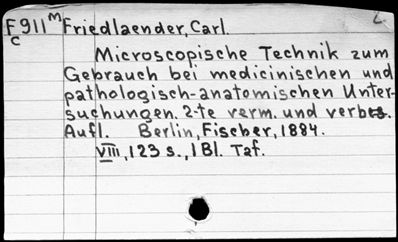 F911M Friedlaender, Carl. 2
C
Microscopische Technik zum
Gebrauch bei medicinischen und
pathologisch-anatomischen Unter-
suchungen. 2-te verm. und verbes.
Aufl. Berlin, Fischer, 1884.
VIII, 123 s., 1 Bl. Taf.